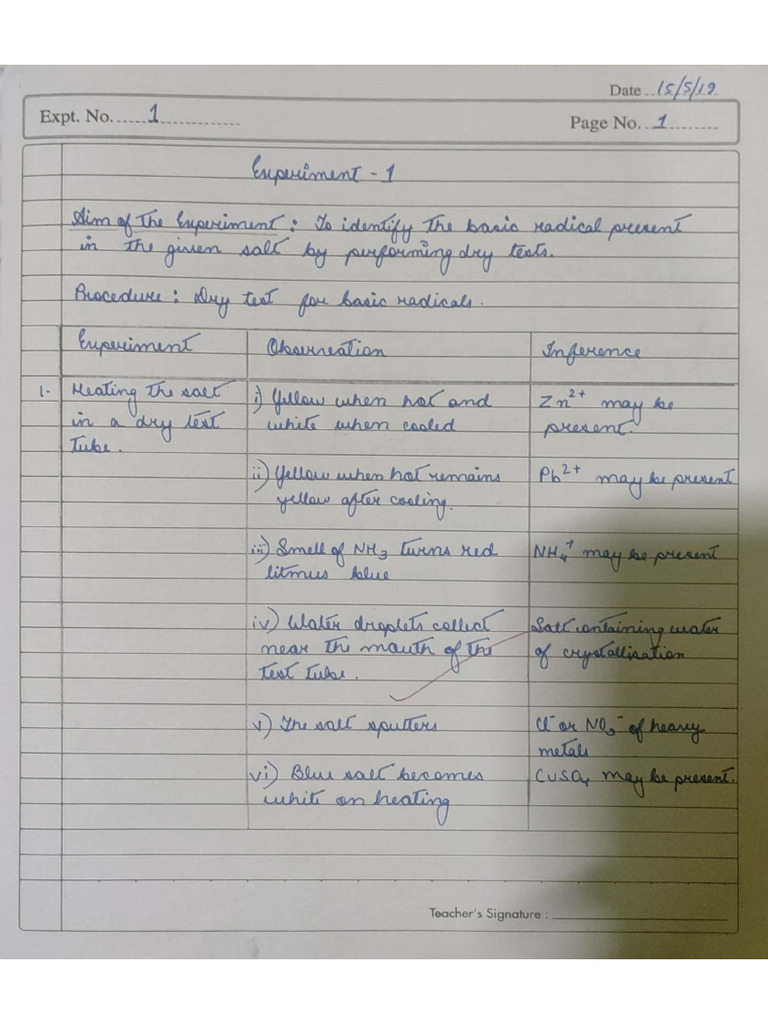 Date 15/5/19
Expt. No. 1
Page No. 1
Experiment - 1
Aim of the Experiment : To identify the basic radical present
in the given salt by performing dry tests.
Procedure : Dry test for basic radicals.
Experiment Observation Inference
1- Heating the salt
in a dry test
tube.
i) Yellow when hot and
white when cooled
Zn²⁺ may be
present.
ii) Yellow when hot remains
yellow after cooling.
Pb²⁺ may be present
iii) Smell of NH₃ turns red
litmus blue
NH₄⁺ may be present
iv) Water droplets collect
near the mouth of the
test tube.
Salt containing water
of crystallisation
v) The salt sputters
Cl⁻ or NO₃⁻ of heavy
metals
vi) Blue salt becomes
white on heating
CuSO₄ may be present.
Teacher's Signature :